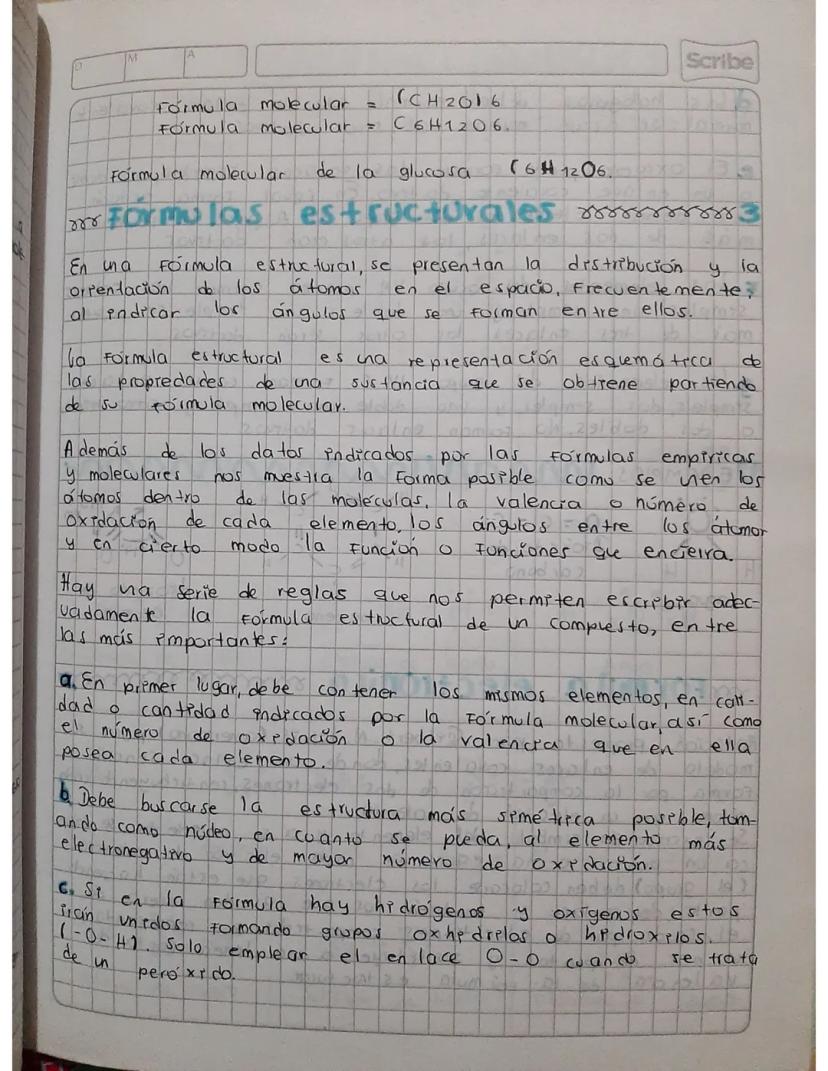 D M A
Scribe
Fórmula molecular = (CH2O)6
Fórmula molecular = C6H12O6.
Fórmula molecular de la glucosa C6H12O6.
Fórmulas estructurales 3
En una Fórmula estructural, se presentan la distribución y la
orientación de los átomos en el espacio, Frecuentemente;
al indicar los ángulos que se forman entre ellos.
La Fórmula estructural es una representación esquemática de
las propiedades de una sustancia que se obtiene partiendo
de su fórmula molecular.
Además de los datos indicados por las Fórmulas empíricas
y moleculares nos muestra la Forma posible como se unen los
átomos dentro de las moléculas, la valencia o número de
oxidación de cada elemento, los ángulos entre los átomor
y en cierto modo la Función o Funciones que encierra.
Hay una serie de reglas que nos permiten escribir adec-
uadamente la Fórmula estructural de un compuesto, entre
las más importantes:
a. En primer lugar, debe contener los mismos elementos, en cali-
dad o cantidad indicados por la Fórmula molecular, así como
el número de oxidación o la valencia que en ella
posea cada elemento.
b. Debe buscarse la estructura más simétrica posible, tom-
ando como núcleo, en cuanto se pueda, al elemento más
electronegativo y de mayor número de oxidación.
c. Si en la Fórmula hay hidrógenos y oxígenos estos
irán unidos formando grupos oxhidrilos o hidroxilos.
(-O-H). Solo emplear el enlace O-O cuando se trata
de un peróxido.